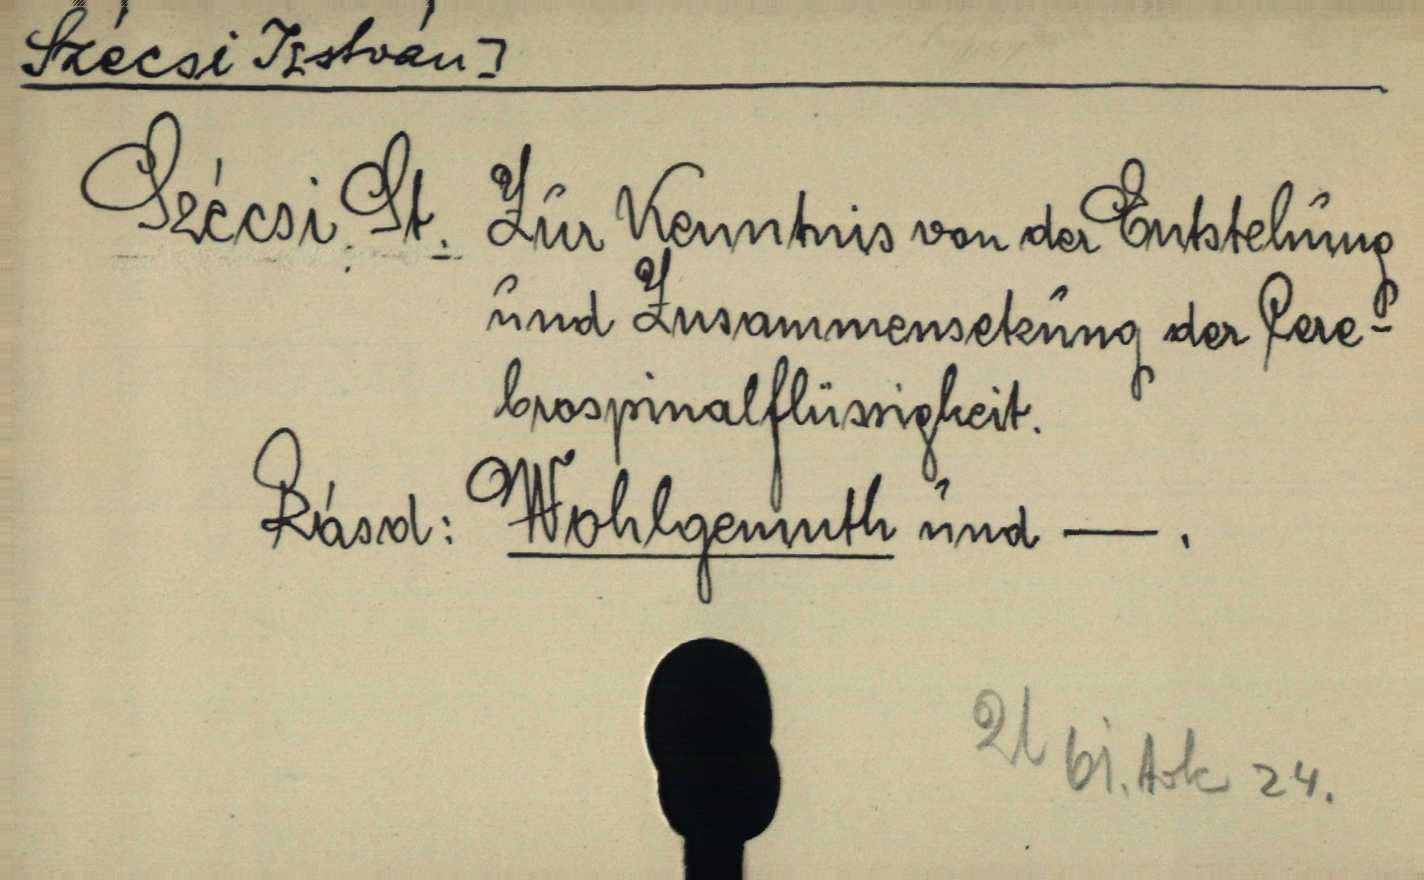 Szécsi István]
Szécsi St. Zur Kenntnis von der Entstehung
und Zusammensetzung der Cere-
brospinalflüssigkeit.
Rásd: Wohlgemuth und — .
bi. tok 24.